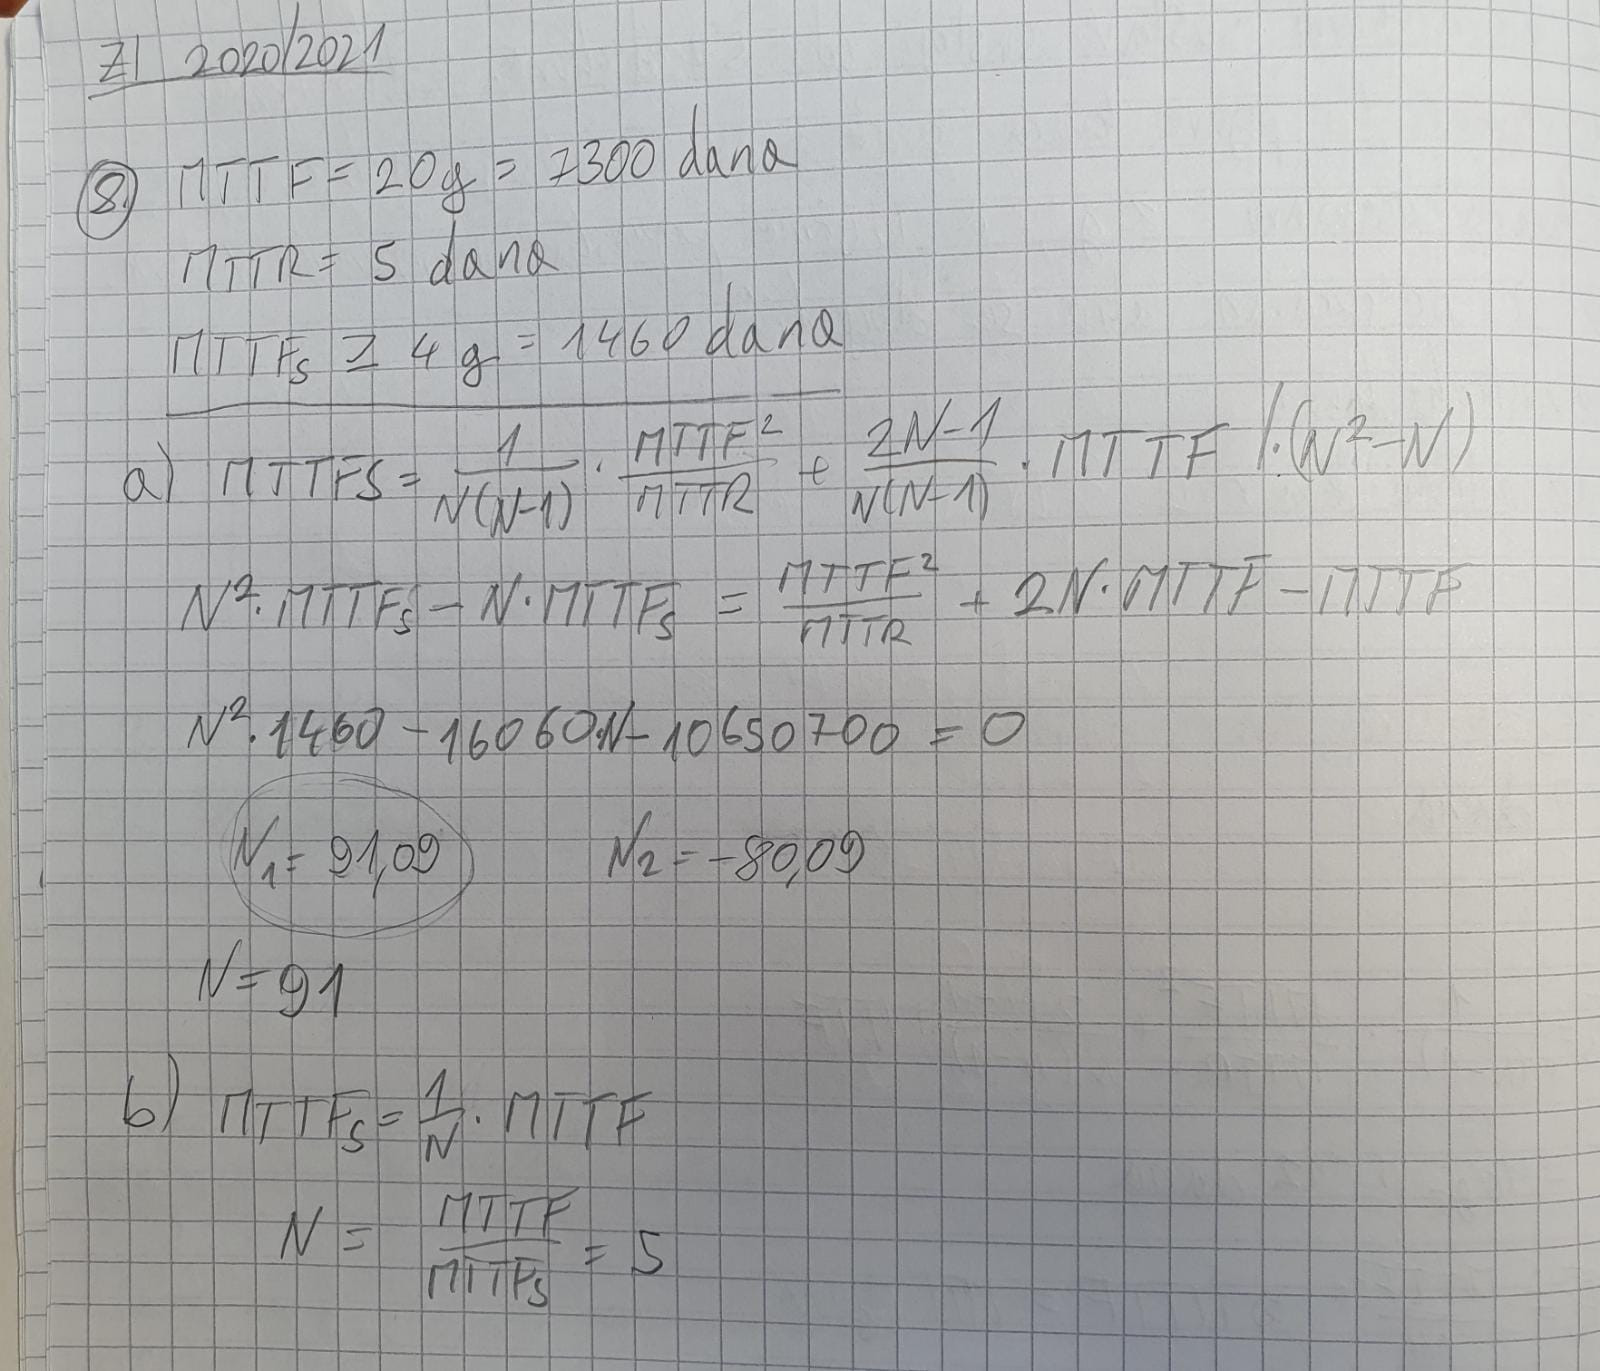 ZI 2020/2021
8. MTTF = 20g = 7300 dana
MTTR = 5 dana
MTTFs ≥ 4g = 1460 dana
a) MTTFS = 1/N(N-1) · MTTF²/MTTR + 2N-1/N(N-1) · MTTF /·(N²-N)
N²·MTTFs - N·MTTFs = MTTF²/MTTR + 2N·MTTF - MTTF
N²·1460 - 16060N - 10650700 = 0
N₁ = 91,09 N₂ = -80,09
N = 91
b) MTTFs = 1/N · MTTF
N = MTTF/MTTFs = 5